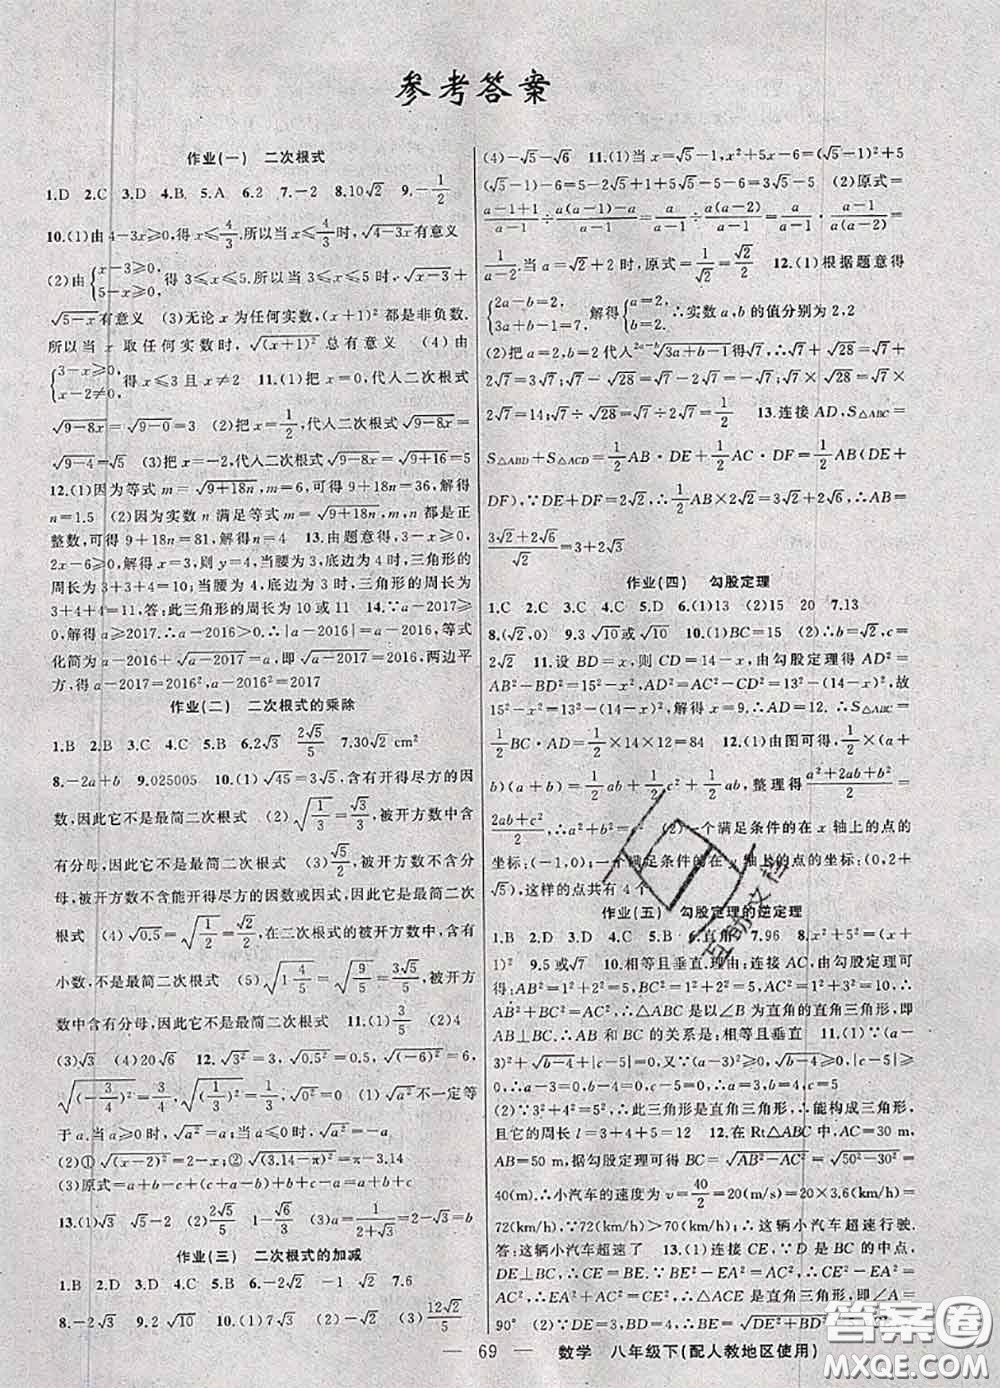 参考答案
作业(一) 二次根式
1.D 2.C 3.D 4.B 5.A 6.2 7.-2 8.10√2 9.-1/2
10.(1)由4-3x≥0,得x≤4/3.所以当x≤4/3时,√(4-3x)有意义
(2)由{x-3≥0, 5-x≥0, 得3≤x≤5.所以当3≤x≤5时,√(x-3)+
√(5-x)有意义 (3)无论x为任何实数,(x+1)²都是非负数.
所以当x取任何实数时,√(x+1)²总有意义 (4)由
{3-x≥0, x-2≠0, 得x≤3且x≠2 11.(1)把x=0,代人二次根式
√(9-8x)=√(9-0)=3 (2)把x=1/2,代人二次根式√(9-8x)=
√(9-4)=√5 (3)把x=-2,代人二次根式√(9-8x)=√(9+16)=5
12.(1)因为等式m=√(9+18n),m=6,可得9+18n=36,解得
n=1.5 (2)因为实数n满足等式m=√(9+18n),m,n都是正
整数,可得9+18n=81,解得n=4 13.由题意得,3-x≥0,
2x-6≥0,解得x=3,则y=4,当腰为3,底边为4时,三角形的
周长为3+3+4=10;当腰为4,底边为3时,三角形的周长为
3+4+4=11,答:此三角形的周长为10或11 14.∵a-2017≥
0,解得a≥2017.∴a-2016>0.∴|a-2016|=a-2016,等式
化简为a-2016+√(a-2017)=a,即√(a-2017)=2016,两边平
方,得a-2017=2016²,∴a-2016²=2017
作业(二) 二次根式的乘除
1.B 2.B 3.C 4.C 5.B 6.2√3 2√5/5 7.30√2 cm²
8.-2a+b 9.025005 10.(1)√45=3√5,含有开得尽方的因
数,因此它不是最简二次根式 (2)√(1/3)=√3/3,被开方数中含
有分母,因此它不是最简二次根式 (3)√5/2,被开方数不含分
母,被开方数不含能开得尽方的因数或因式,因此它是最简二次
根式 (4)√0.5=√(1/2)=√2/2,在二次根式的被开方数中,含有
小数,不是最简二次根式 (5)√(1 4/5)=√(9/5)=3√5/5,被开方
数中含有分母,因此它不是最简二次根式 11.(1)3/5 (2)4
(3)√3 (4)20√6 12.√3²=3,√0.5²=0.5,√(-6)²=6,
√(-3/4)²=3/4,√(1/3)²=1/3,√0²=0.(1)√a²不一定等
于a.当a≥0时,√a²=a;当a<0时,√a²=-a
(2)①√(x-2)²=2-x;②√(3.14-π)²=π-3.14
(3)原式=a+b-c+(c+a-b)+b+c-a=a+b+c
13.(1)√3 √5-2 (2)√5/5 1-√6/3 (3)∵a=1/(2+√3)=2-√3=b
作业(三) 二次根式的加减
1.B 2.D 3.D 4.C 5.B 6.-2√2 -1 √2 7.6
8.-2√3 9.2√10 10.(1)7√3 (2)√3 (3)12√2/5
(4)-√5-√6 11.(1)当x=√5-1,x²+5x-6=(√5-1)²+5
(√5-1)-6=5-2√5+1+5√5-5-6=3√5-5 (2)原式=
(a-1+1)/(a-1)÷(a(a-1)-a)/(a-1)=a/(a-1)÷a(a-2)/(a-1)=a/(a-1)·(a-1)/a(a-2)=
1/(a-2).当a=√2+2时,原式=1/√2=√2/2 12.(1)根据题意得
{2a-b=2, 3a+b-1=7, 解得{a=2, b=2. ∴实数a,b的值分别为2,2
(2)把a=2,b=2代人 ²ᵃ⁻ᵇ√(3a+b-1)得√7,∴√7+√28=√7+
2√7=3√7;√7-√28=√7-2√7=-√7;√7×√28=√7×
2√7=14;√7÷√28=√7÷2√7=1/2 13.连接AD,S△ABC=
S△ABD+S△ACD=1/2AB·DE+1/2AC·DF=1/2AB(DE+
DF),∵DE+DF=2√2,∴1/2AB×2√2=3√2+2√6,∴AB=
(3√2+2√6)/√2=3+2√3
作业(四) 勾股定理
1.C 2.C 3.C 4.C 5.D 6.(1)13 (2)15 20 7.13
8.(√2,0) 9.3√10或√10 10.(1)BC=15 (2)∴b=√2,c=
2√2 11.设BD=x,则CD=14-x,由勾股定理得AD²=
AB²-BD²=15²-x²,AD²=AC²-CD²=13²-(14-x)²,故
15²-x²=13²-(14-x)²,解得x=9.∴AD=12.∴S△ABC=
1/2BC·AD=1/2×14×12=84 12.(1)由图可得,1/2×(a+
b)(a+b)=1/2ab+1/2c²+1/2ab,整理得(a²+2ab+b²)/2=
(2ab+c²)/2,∴a²+b²=c² (2)一个满足条件的在x轴上的点的
坐标:(-1,0);一个满足条件的在y轴上的点的坐标:(0,2+
√5),这样的点共有4个
作业(五) 勾股定理的逆定理
1.B 2.B 3.C 4.C 5.B 6.直角 7.96 8.x²+5²=(x+
1)² 9.5或√7 10.相等且垂直.理由:连接AC,由勾股定理可得
AB²=1²+2²=5,BC²=1²+2²=5,AC²=1²+3²=10,
∴AB²+BC²=AC².∴△ABC是以∠B为直角的直角三角形,即
AB⊥BC.∴AB和BC的关系是:相等且垂直 11.(1)∵(a-
3)²+√(b-4)+|c-5|=0,又∵(a-3)²≥0,√(b-4)≥0,|c-5|≥
0,∴a-3=0,b-4=0,c-5=0,∴a=3,b=4,c=5
(2)∵3²+4²=5²,∴此三角形是直角三角形,∴能构成三角形,
且它的周长l=3+4+5=12 12.在Rt△ABC中,AC=30 m,
AB=50 m,据勾股定理可得BC=√(AB²-AC²)=√(50²-30²)=
40(m).∴小汽车的速度为v=40/2=20(m/s)=20×3.6(km/h)=
72(km/h),∵72(km/h)>70(km/h),∴这辆小汽车超速行驶.
答:这辆小汽车超速了 13.(1)连接CE,∵D是BC的中点,
DE⊥BC,∴CE=BE.∵BE²-AE²=AC²,∴CE²-AE²=
AC².∴AE²+AC²=CE².∴△ACE是直角三角形,即∠A=
90° (2)∵DE=3,BD=4,∴BE=√(DE²+BD²)=5
69 数学 八年级下(配人教地区使用)
答案卷
MXQE.COM